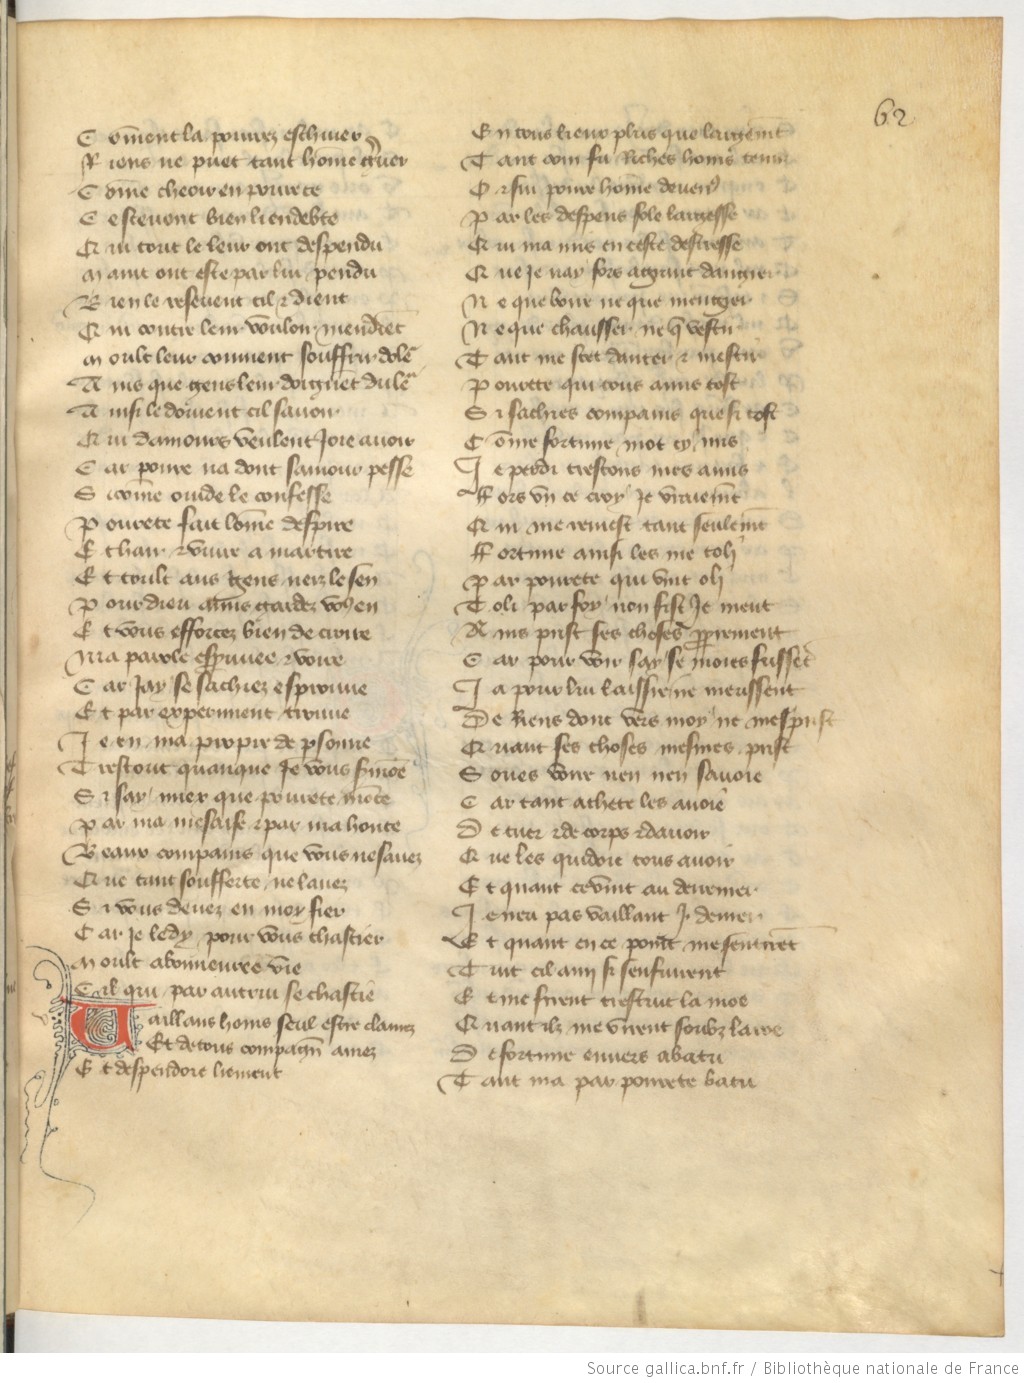 62
Coment la pourrez eschiver
Riens ne puet tant home grever
Come cheoir en povrete
Ce scevent bien li endebte
Qui tout le leur ont despendu
Maint ont este par lui pendu
Bien le resevent cil et dient
Qui contre leur vouloir mendient
Moult leur convient souffrir dole
Ains que gens leur doignent du le
Ainsi le doivent cil savoir
Qui damours veulent joie avoir
Car povre na dont samour pesse
Si come ovide le confesse
Povrete fait lome despire
Et hair et vivre a martire
Et toult aus gens neiz le sen
Pour dieu amis gardez vous en
Et vous efforcez bien de croire
Ma parole esprouvee et voire
Car jay se sachiez esprouve
Et par experiment trouve
Je en ma propre de psonne
Trestout quanque je vous smone
Si say miex que povrete monte
Par ma mesaise et par ma honte
Beaux compains que vous ne savez
Que tant soufferte ne lavez
Si vous devez en moy fier
Car je le dy pour vous chastier
Moult a boneuree vie
Cil qui par autrui se chastie
Vaillans homs seul estre clamez
Et de tous compagn amez
Et despendoie liement
En tous lieux plus que largement
Tant com fu riches homs tenu
Or sui povre home devenu
Par les despens fole largesse
Qui ma mis en ceste destresse
Que je nay fors a grant dangier
Ne que boire ne que mengier
Ne que chausser ne que vestir
Tant me scet danter et mestir
Povrete qui tous amis tost
Si sachies compains que si tost
Come fortune mot cy mis
Je perdi trestous mes amis
Fors un ce croy je vraiemt
Qui me remest tant seulemt
Fortune ainsi les me toli
Par povrete qui vint o li
Toli par foy non fist je ment
Ains prist ses choses proprement
Car pour voir say se moies fussent
Ja pour lui laissie ne meussent
De riens dont vers moy ne mesprist
Quant ses choses mesmes prist
Soues voire nen nen savoie
Car tant achete les avoie
De cuer et de corps et davoir
Que les quidoie tous avoir
Et quant ce vint au derrenier
Je neu pas vaillant j denier
Et quant en ce point me sentirent
Tuit cil ami si senfuirent
Et me firent trestuit la moe
Quant ilz me virent soubz la roe
De fortune envers abatu
Tant ma par povrete batu
Source gallica.bnf.fr / Bibliothèque nationale de France